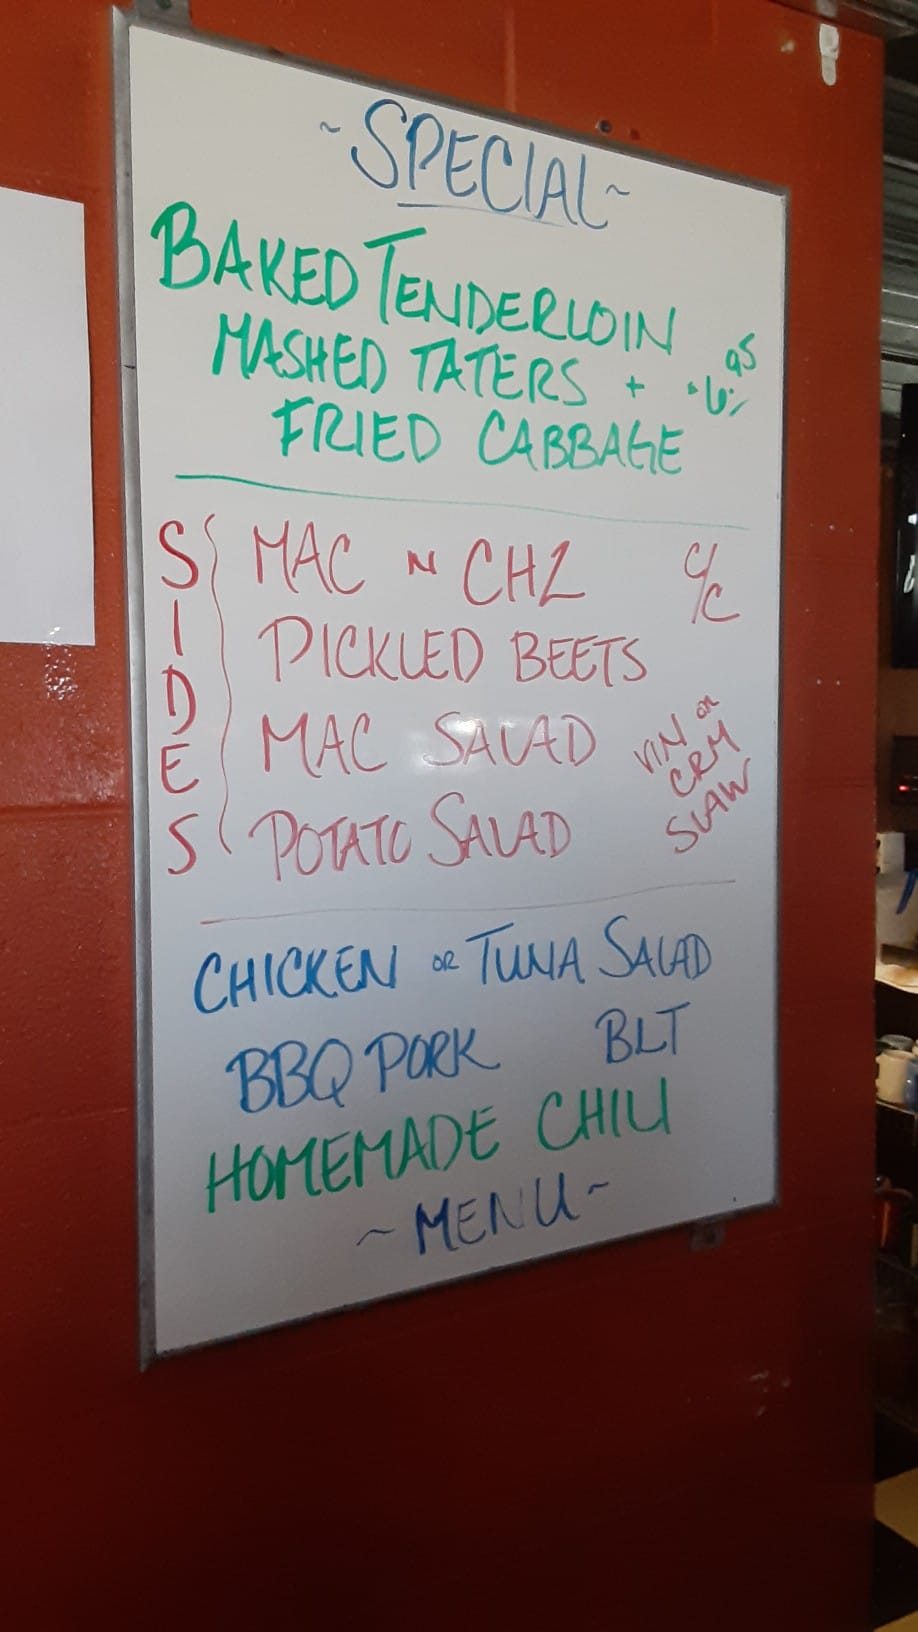 ~SPECIAL~
BAKED TENDERLOIN
MASHED TATERS + $6.95
FRIED CABBAGE
SIDES
MAC N CHZ C/C
PICKLED BEETS
MAC SALAD
POTATO SALAD
VIN or
CRM
SLAW
CHICKEN OR TUNA SALAD
BBQ PORK BLT
HOMEMADE CHILI
~MENU~